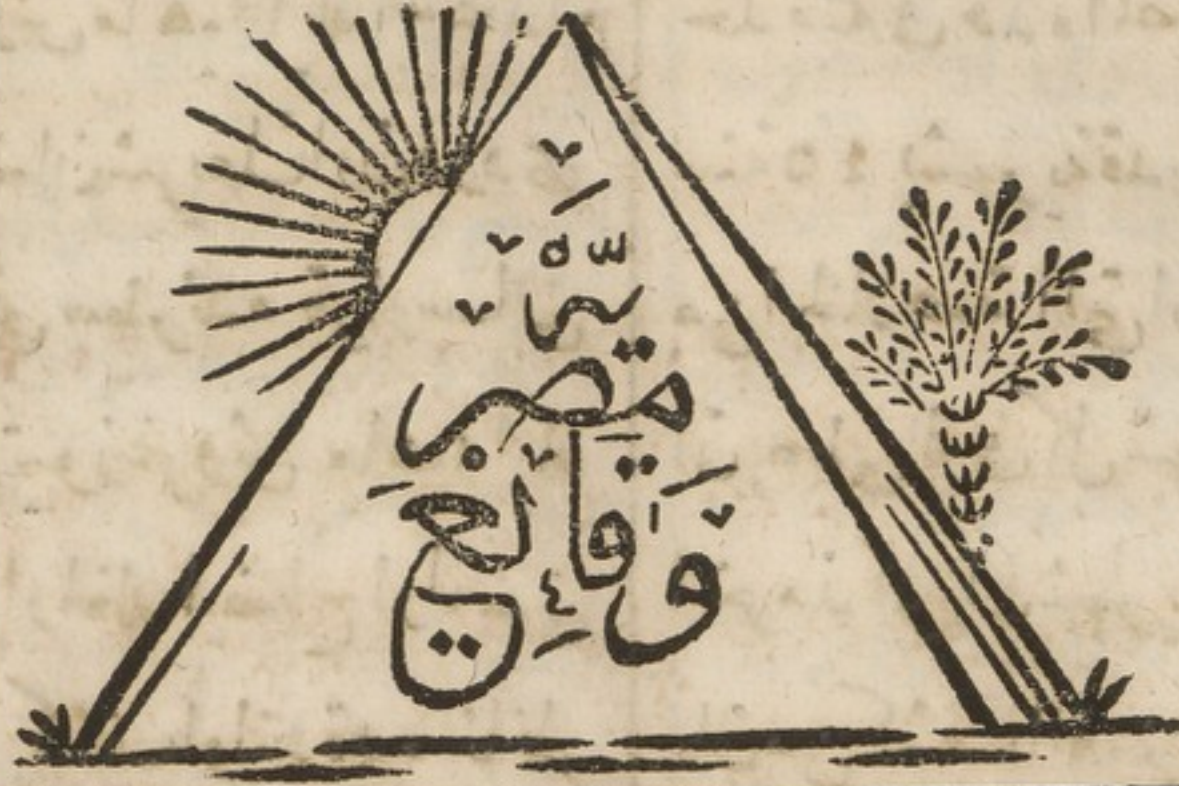 وقائع
مصريه